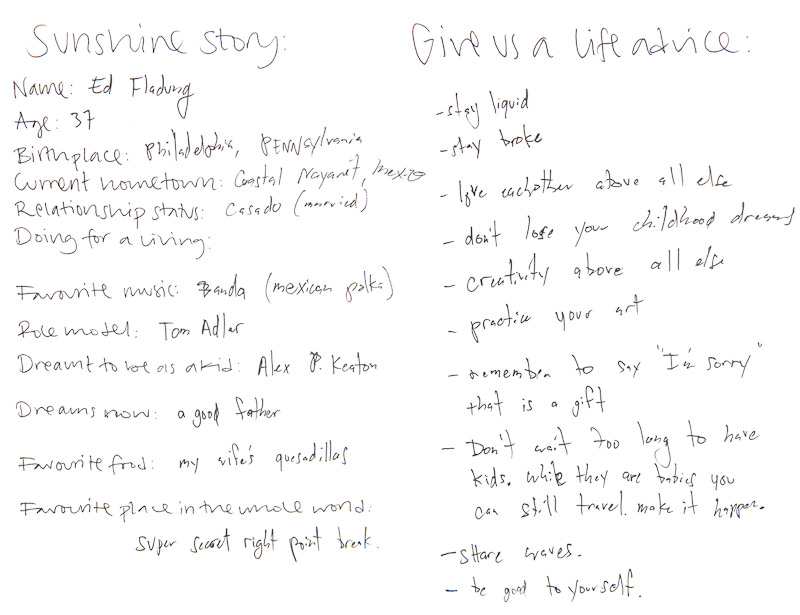 Sunshine story:
Name: Ed Fladung
Age: 37
Birthplace: Philadelphia, PENNsylvania
Current hometown: Coastal Nayarit, Mexico
Relationship status: Casado (married)
Doing for a living:
Favourite music: Banda (mexican polka)
Role model: Tom Adler
Dreamt to be as a kid: Alex P. Keaton
Dreams now: a good father
Favourite food: my wife's quesadillas
Favourite place in the whole world:
super secret right point break.
Give us a life advice:
- stay liquid
- stay broke
- love eachother above all else
- don't lose your childhood dreams
- creativity above all else
- practice your art
- remember to say "I'm sorry"
that is a gift
- Don't wait too long to have
kids. while they are babies you
can still travel. make it happen.
- share waves.
- be good to yourself.